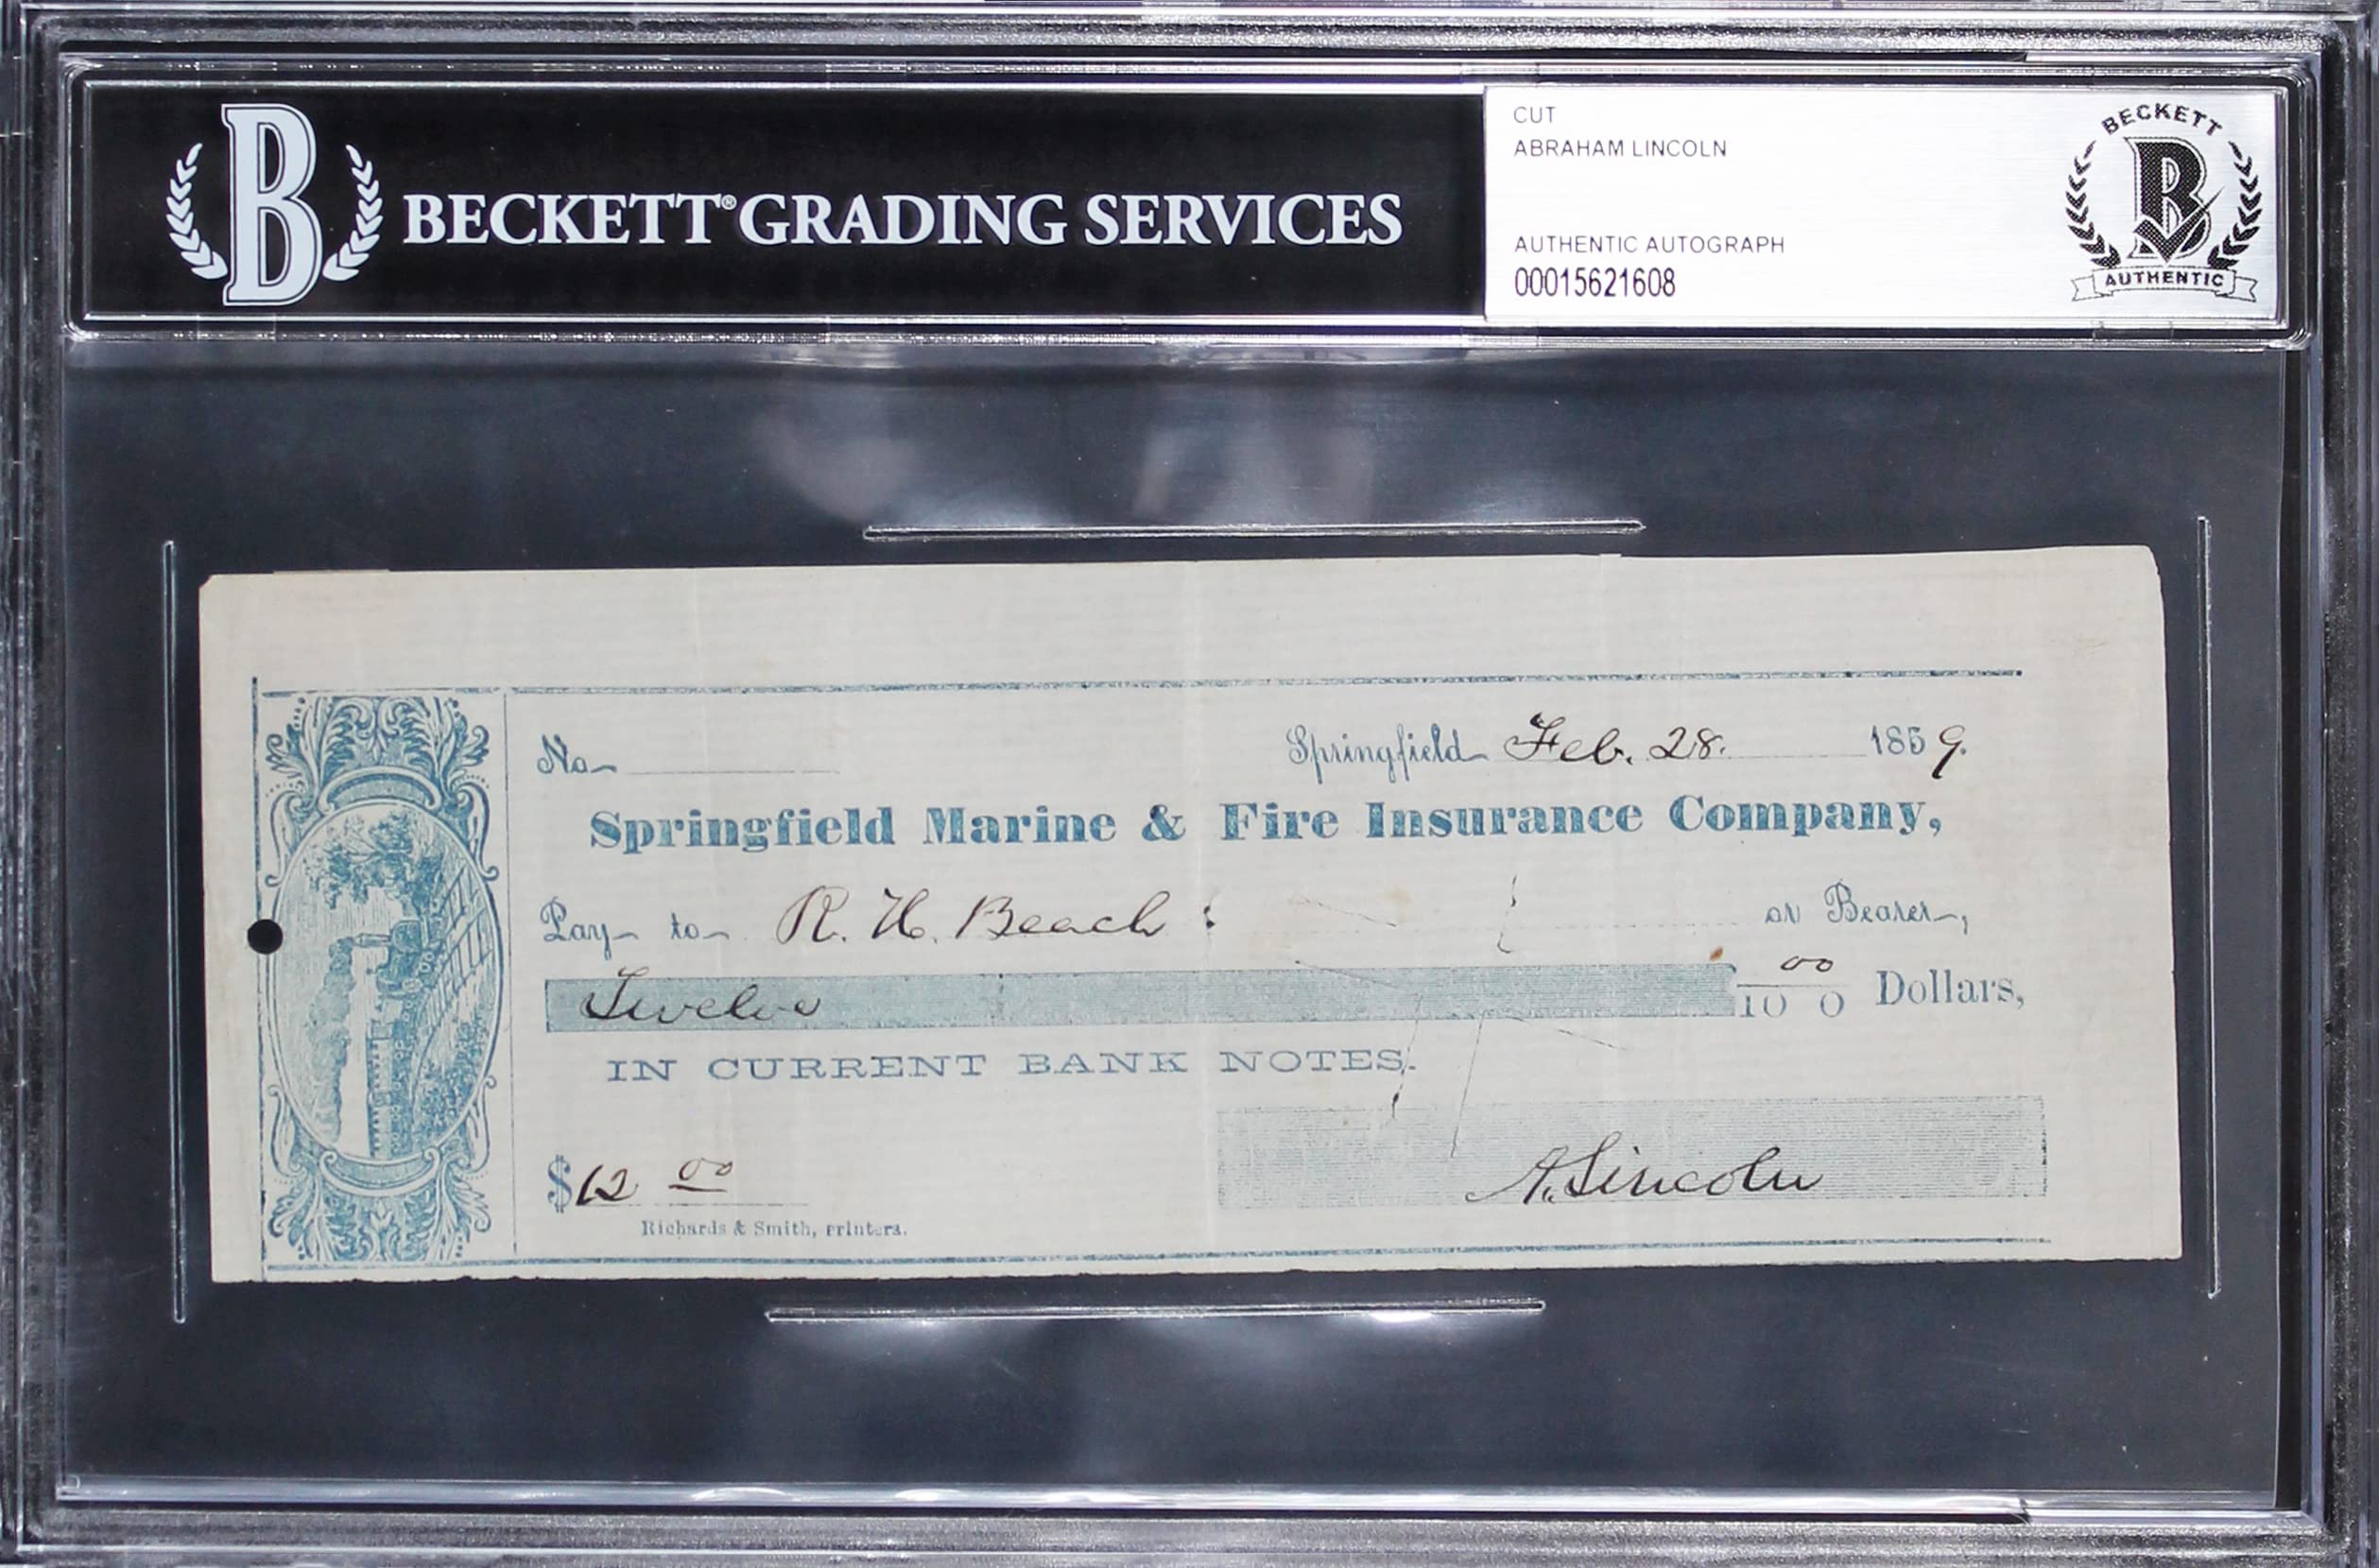 B BECKETT® GRADING SERVICES
CUT
ABRAHAM LINCOLN
AUTHENTIC AUTOGRAPH
00015621608
BECKETT
B
AUTHENTIC
No
Springfield Feb. 28. 1859.
Springfield Marine & Fire Insurance Company,
Pay to R. H. Beach: or Bearer,
Twelve 00/100 Dollars,
IN CURRENT BANK NOTES.
$12 00
A. Lincoln
Richards & Smith, printers.